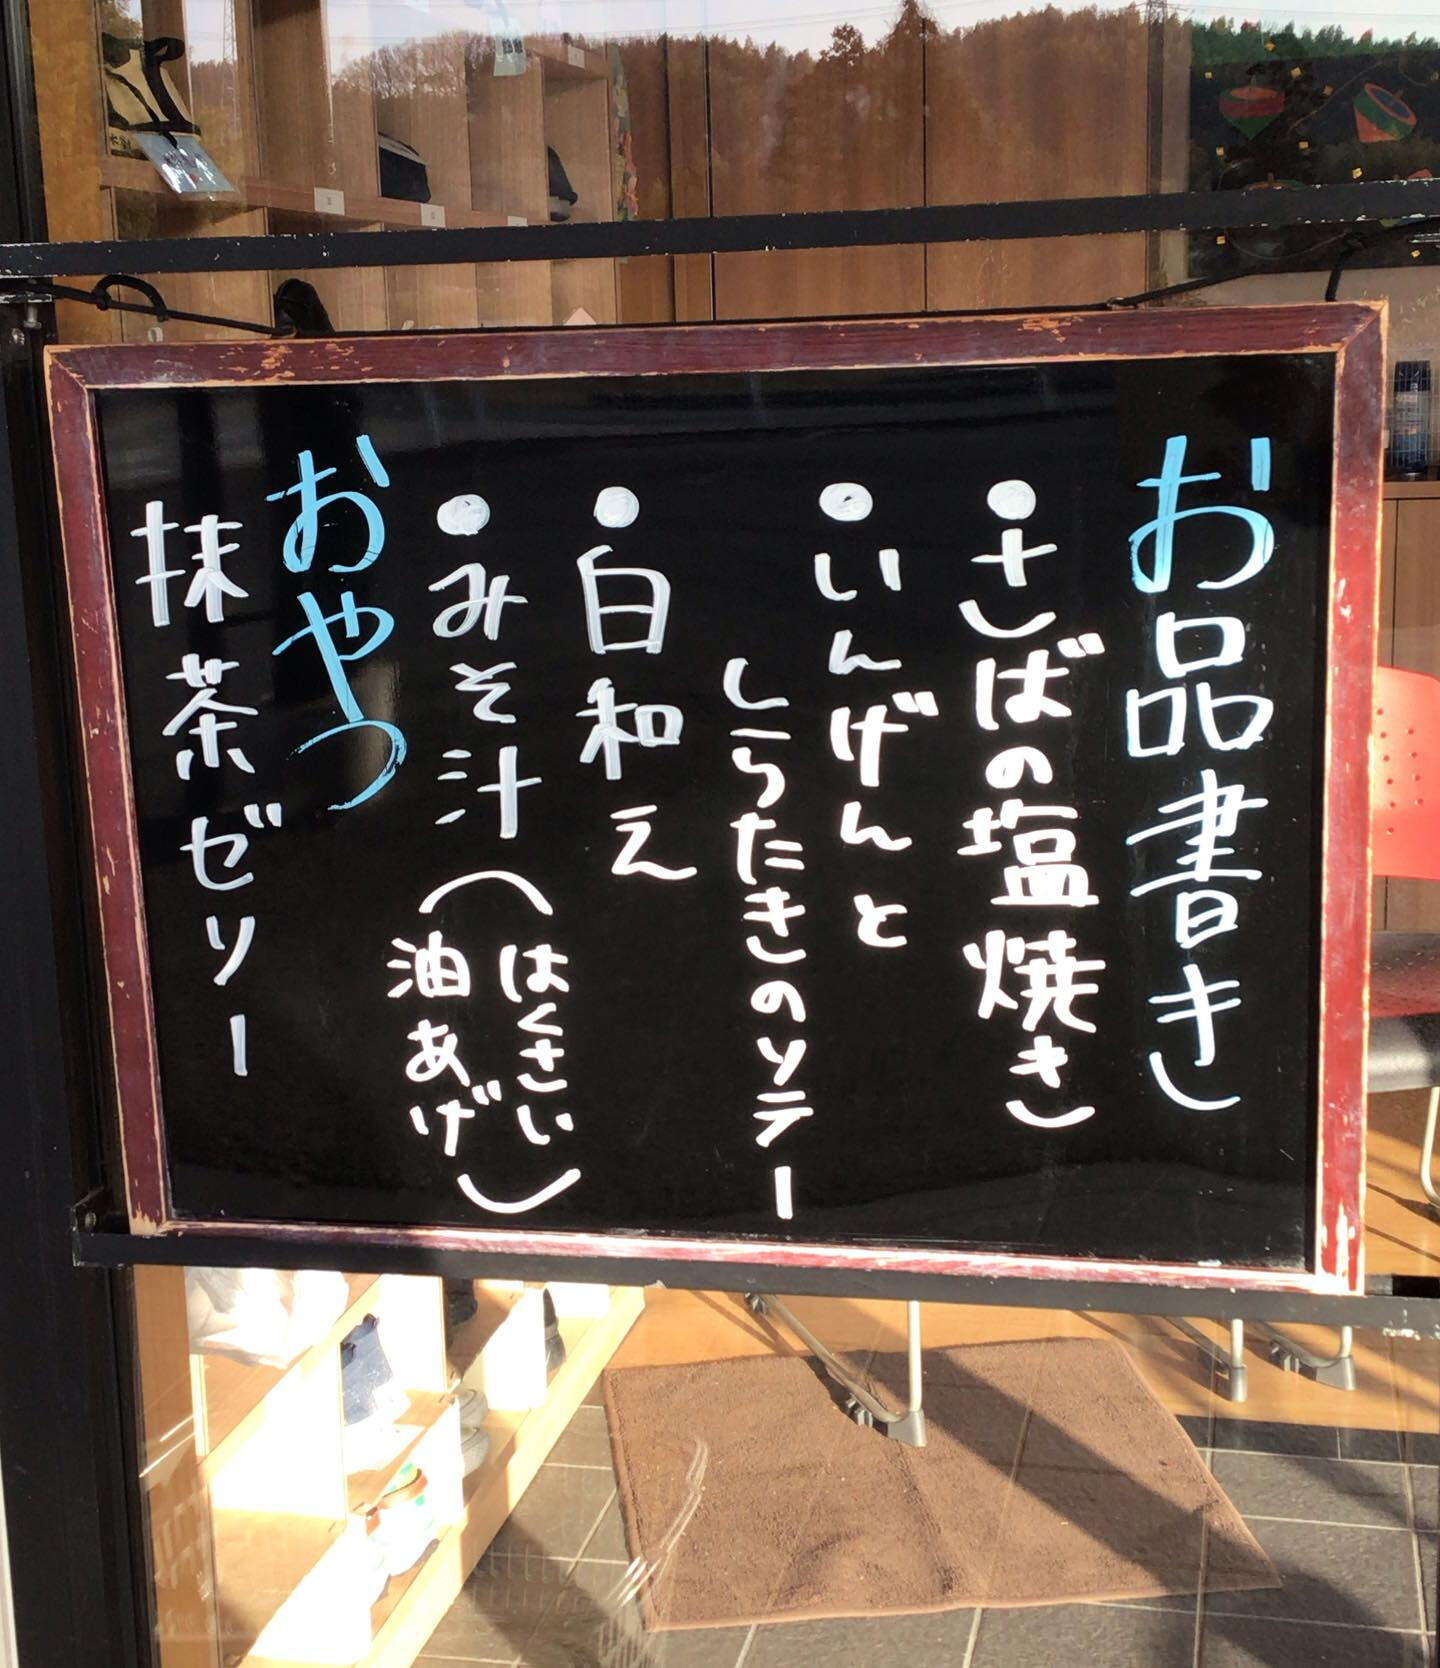 お品書き
●さばの塩焼き
●いんげんと
しらたきのソテー
●白和え
●みそ汁(はくさい
油あげ)
おやつ
抹茶ゼリー